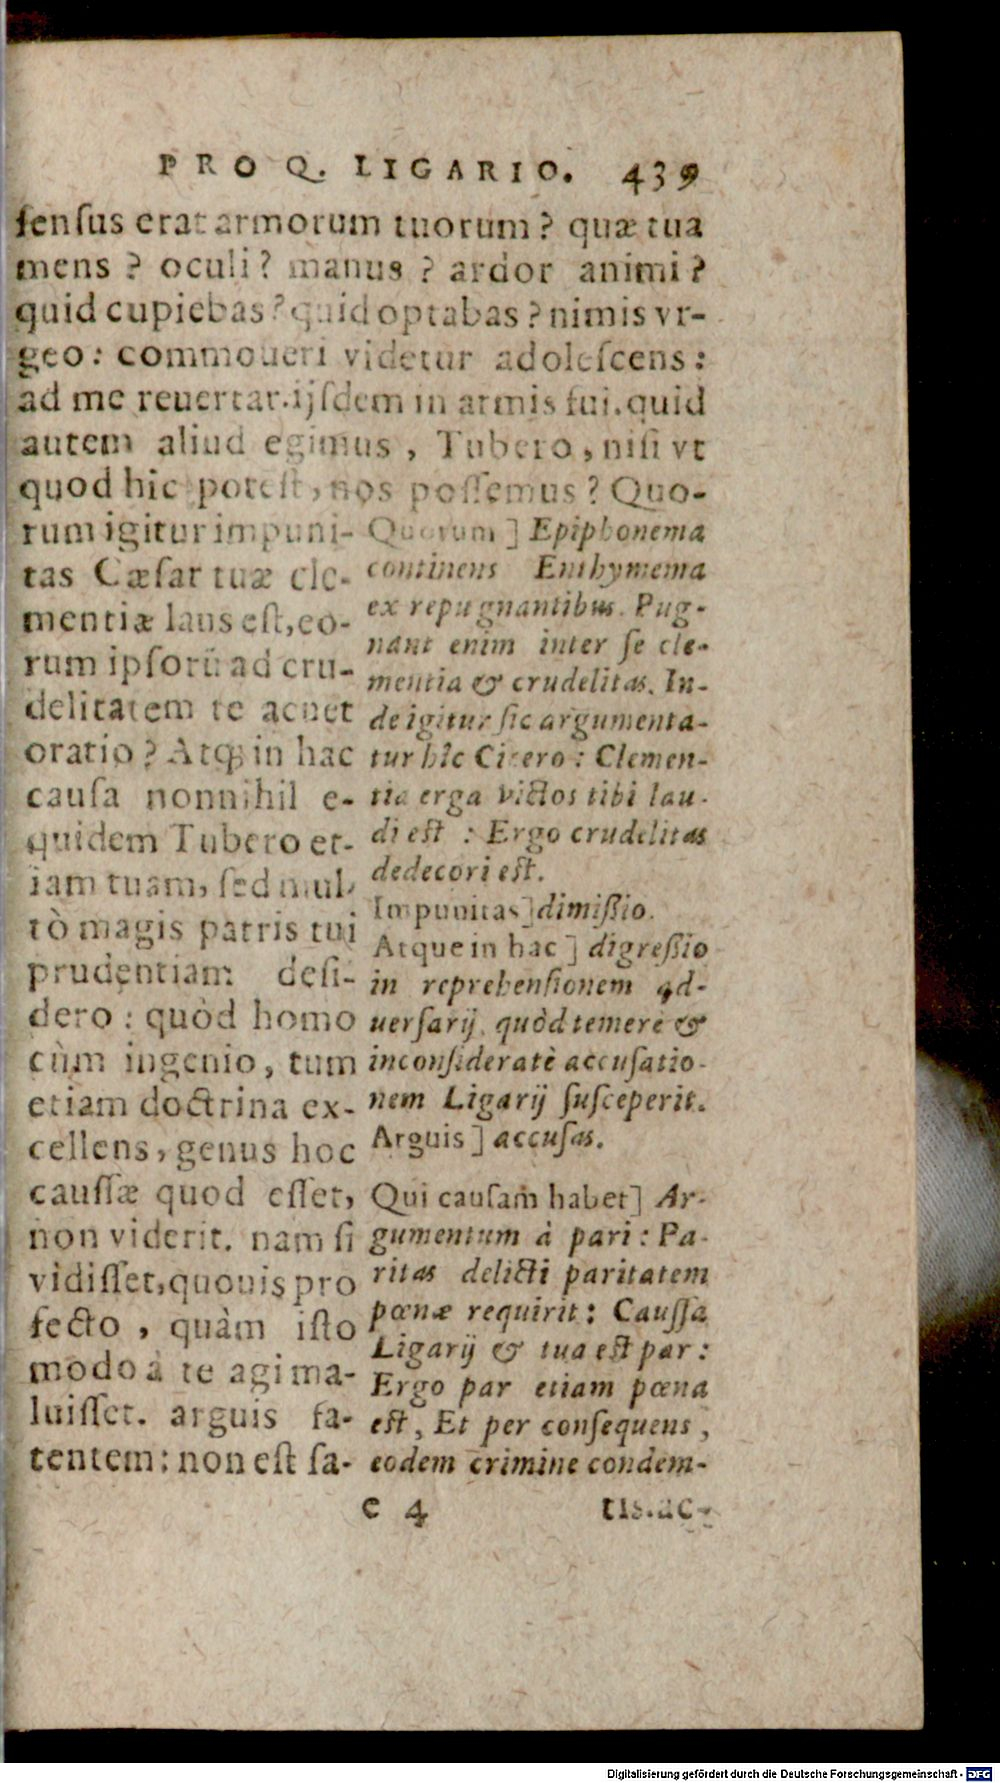 PRO Q. LIGARIO. 439
ſenſus erat armorum tuorum? quæ tua
mens? oculi? manus? ardor animi?
quid cupiebas? quid optabas? nimis vr-
geo: commoueri videtur adoleſcens:
ad me reuertar. ijſdem in armis fui. quid
autem aliud egimus, Tubero, niſi vt
quod hic poteſt, nos poſſemus? Quo-
rum igitur impuni-
tas Cæſar tuæ cle-
mentiæ laus eſt, eo-
rum ipſorū ad cru-
delitatem te acuet
oratio? Atq; in hac
cauſa nonnihil e-
quidem Tubero et-
iam tuam, ſed mul-
tò magis patris tui
prudentiam deſi-
dero: quòd homo
cùm ingenio, tum
etiam doctrina ex-
cellens, genus hoc
cauſſæ quod eſſet,
non viderit. nam ſi
vidiſſet, quouis pro
fecto, quàm iſto
modo à te agi ma-
luiſſet. arguis fa-
tentem: non eſt ſa-
Quorum] Epiphonema
continens Enthymema
ex repugnantibus. Pug-
nant enim inter ſe cle-
mentia & crudelitas. In-
de igitur ſic argumenta-
tur hîc Cicero: Clemen-
tia erga victos tibi lau-
di eſt: Ergo crudelitas
dedecori eſt.
Impunitas] dimißio.
Atque in hac] digreßio
in reprehenſionem ad-
uerſarij, quòd temerè &
inconſideratè accuſatio-
nem Ligarij ſuſceperit.
Arguis] accuſas.
Qui cauſam habet] Ar-
gumentum à pari: Pa-
ritas delicti paritatem
pœnæ requirit: Cauſſa
Ligarij & tua eſt par:
Ergo par etiam pœna
eſt, Et per conſequens,
eodem crimine condem-
c 4 tis. ac-
Digitalisierung gefördert durch die Deutsche Forschungsgemeinschaft - DFG